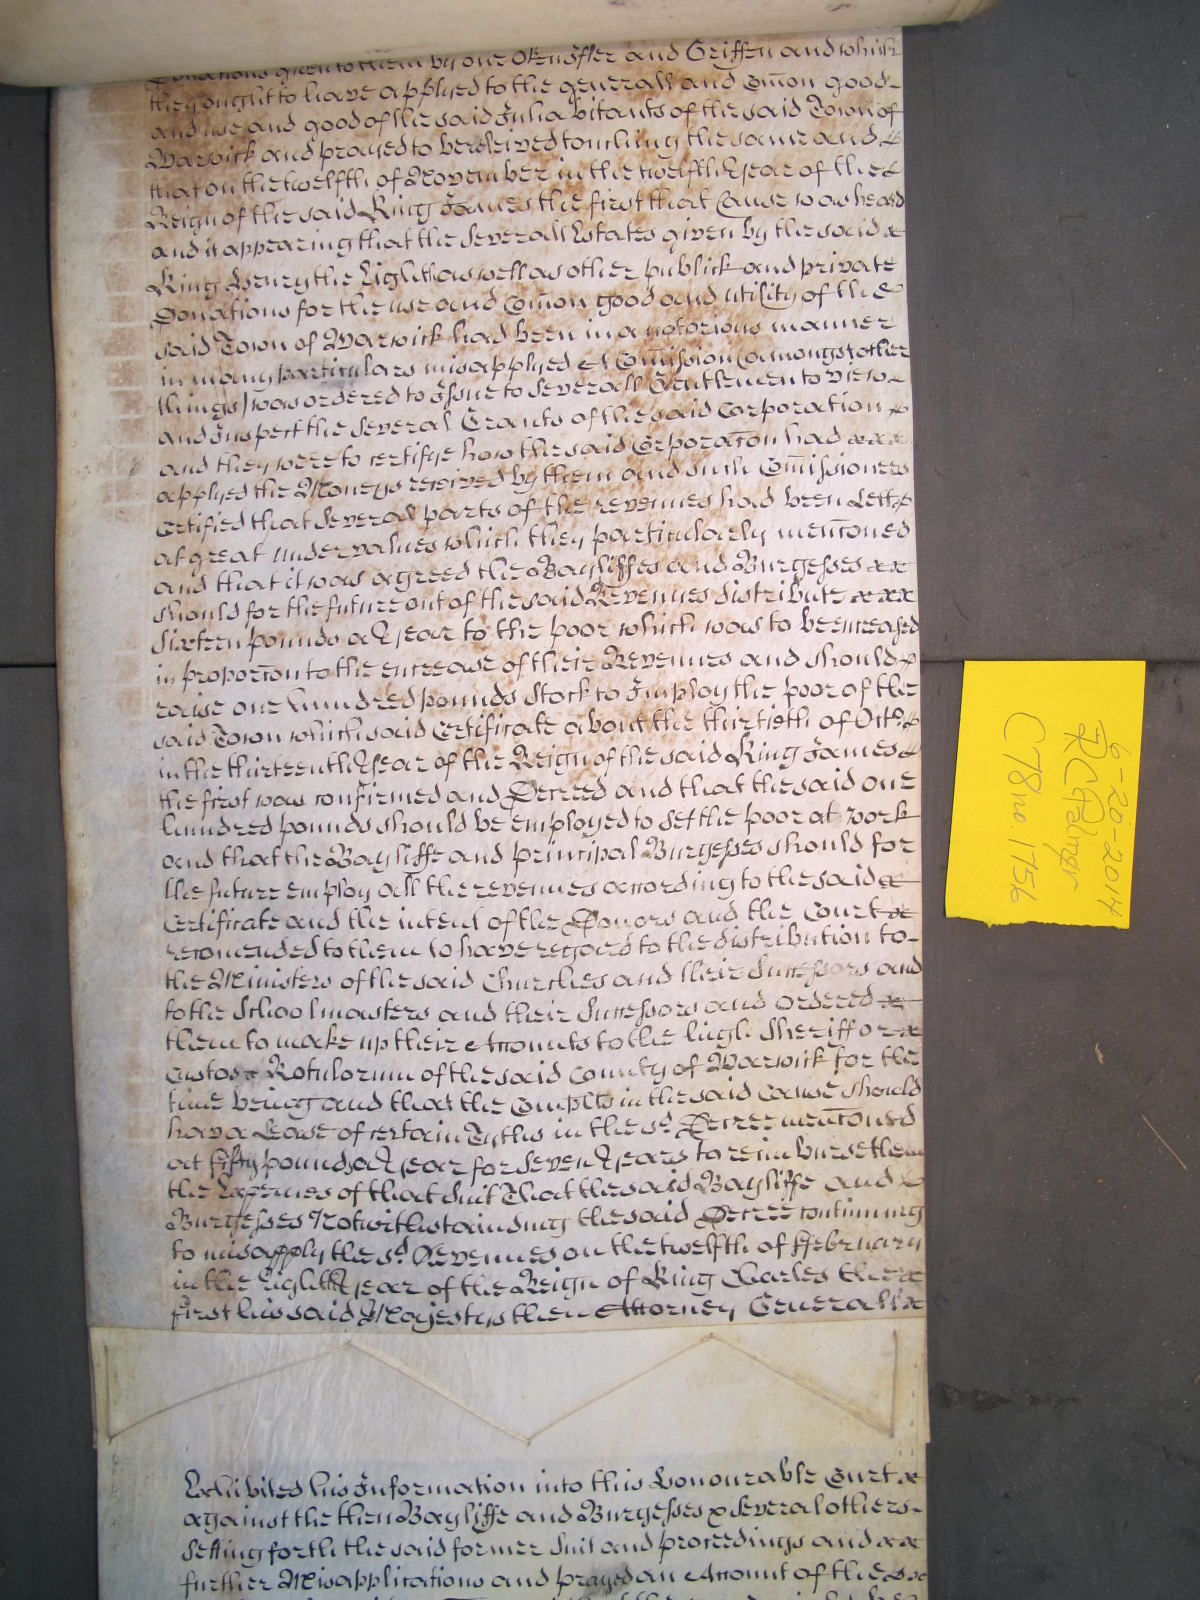 Donations given to them by one Okensfler and Griffen and which
they ought to have applyed to the generall and Com̃on good
and use and good of the said Inhabitants of the said Town of
Warwick and prayed to be releived touching the same and
that on the twelfth of November in the twelfth Year of the
Reign of the said King James the first that Cause was heard
and it appearing that the severall Estates given by the said
King Henry the Eighth as well as other publick and private
Donations for the use and Com̃on good and utility of the
said Town of Warwick had been in a notorious manner
in many particulars misapplyed A Com̃ission (amongst other
things) was ordered to Issue to severall Gentlemen to view
and Inspect the several Grants of the said Corporation
and they were to certifye how the said Corporac̃on had
applyed the Moneys received by them and such Com̃issioners
certified that several parts of the revenues had been Lett
at great undervalues which they particularly menc̃oned
and that it was agreed the Bayliffes and Burgesses
should for the future out of the said Revenues distribute
sixteen pounds a Year to the poor which was to be encreased
in proporc̃on to the encrease of their Revenues and should
raise one hundred pounds Stock to Imploy the poor of the
said Town which said Certificate about the thirtieth of Octr.
in the thirteenth Year of the Reign of the said King James
the first was confirmed and Decreed and that the said one
hundred pounds should be employed to Sett the poor at work
and that the Bayliffe and principal Burgesses should for
the future employ all the revenues according to the said
Certificate and the intent of the Donors and the Court
recomended to them to have regard to the distribution to
the Ministers of the said Churches and their Successors and
to the Schoolmasters and their Successors and ordered
them to make up their Accounts to the high Sheriff or
Custos Rotulorum of the said County of Warwick for the
time being and that the Complts in the said Cause should
have a Lease of certain Tyths in the sd. Decree menc̃oned
at fifty pounds a Year for Seven Years to reimburse them
the Expences of that Suit That the said Bayliffe and
Burgesses Notwithstanding the said Decree continuing
to misapply the sd. Revenues on the twelfth of ffebruary
in the Eighth Year of the Reign of King Charles the
first his said Majestys then Attorney Generall
Exhibited his Information into this Honourable Court
against the then Bayliffe and Burgesses & several others
Setting forth the said former Suit and proceedings and
further Misapplications and prayed an Account of the
6-20-2014
R C Palmer
C78 no. 1756